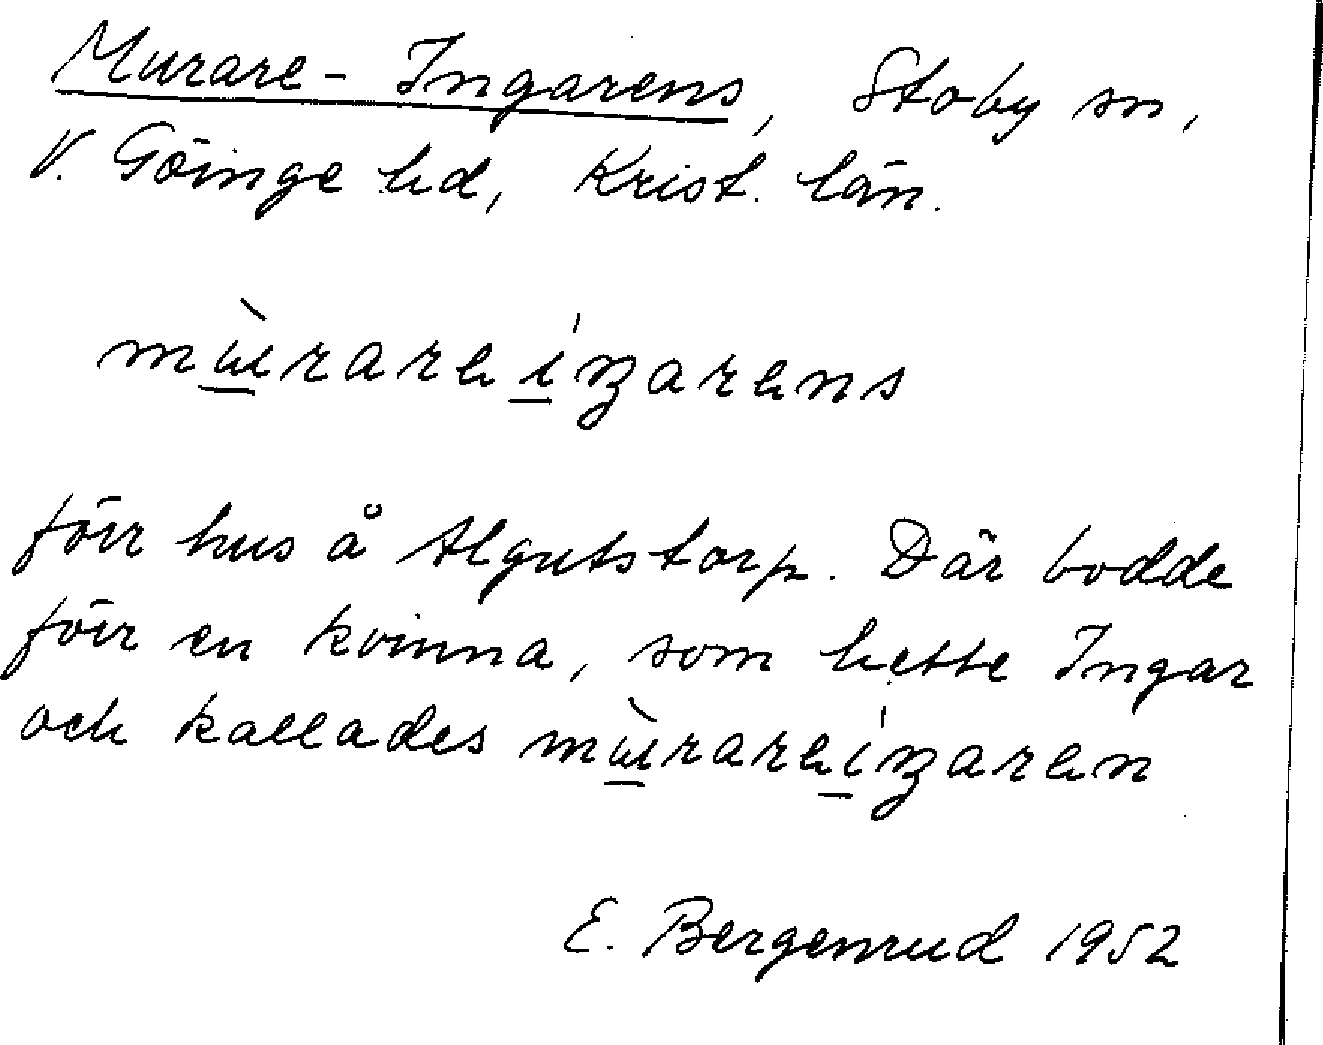 Murare-Ingarens, Stoby sn,
V. Göinge hd, Krist. län.
mùrareíŋarens
förr hus å Algutstorp. Där bodde
förr en kvinna, som hette Ingar
och kallades mùrareíŋaren
E. Bergenrud 1952